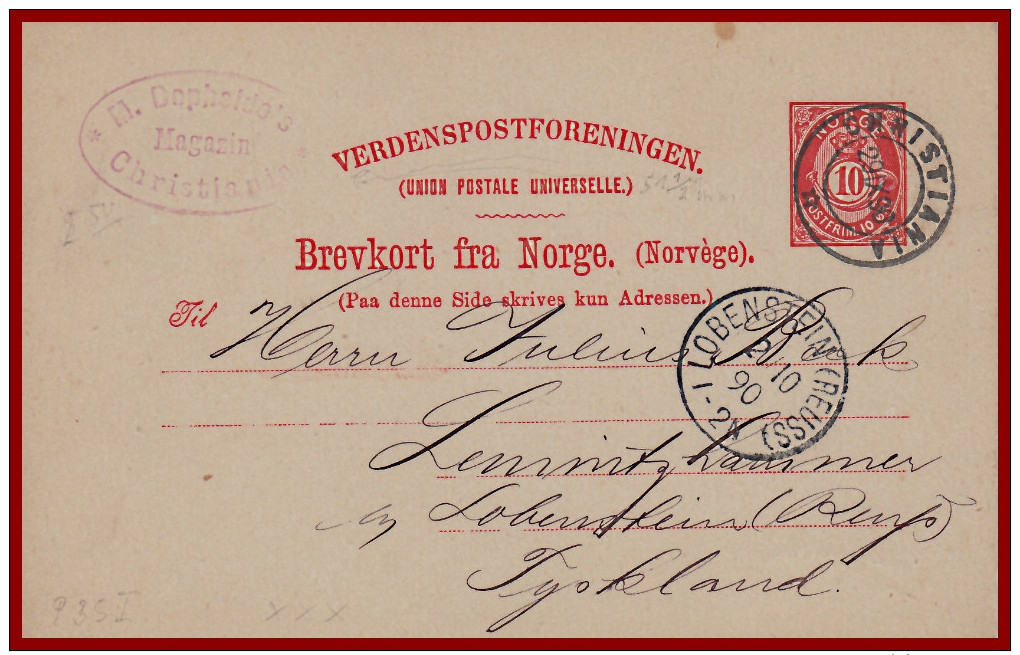 H. Dopheide's
Magazin
* Christiania
VERDENSPOSTFORENINGEN.
(UNION POSTALE UNIVERSELLE.)
Brevkort fra Norge. (Norvège).
(Paa denne Side skrives kun Adressen.)
NORGE
10
POSTFRIM. 10
CHRISTIANIA
Til Herrn Julius Bock
LOBENSTEIN (REUSS)
2 10
90
1-2N
Lemnitzhammer
Lobenstein (Reuß)
Tyskland.
51 1/2 mm
P 35 I
x x x